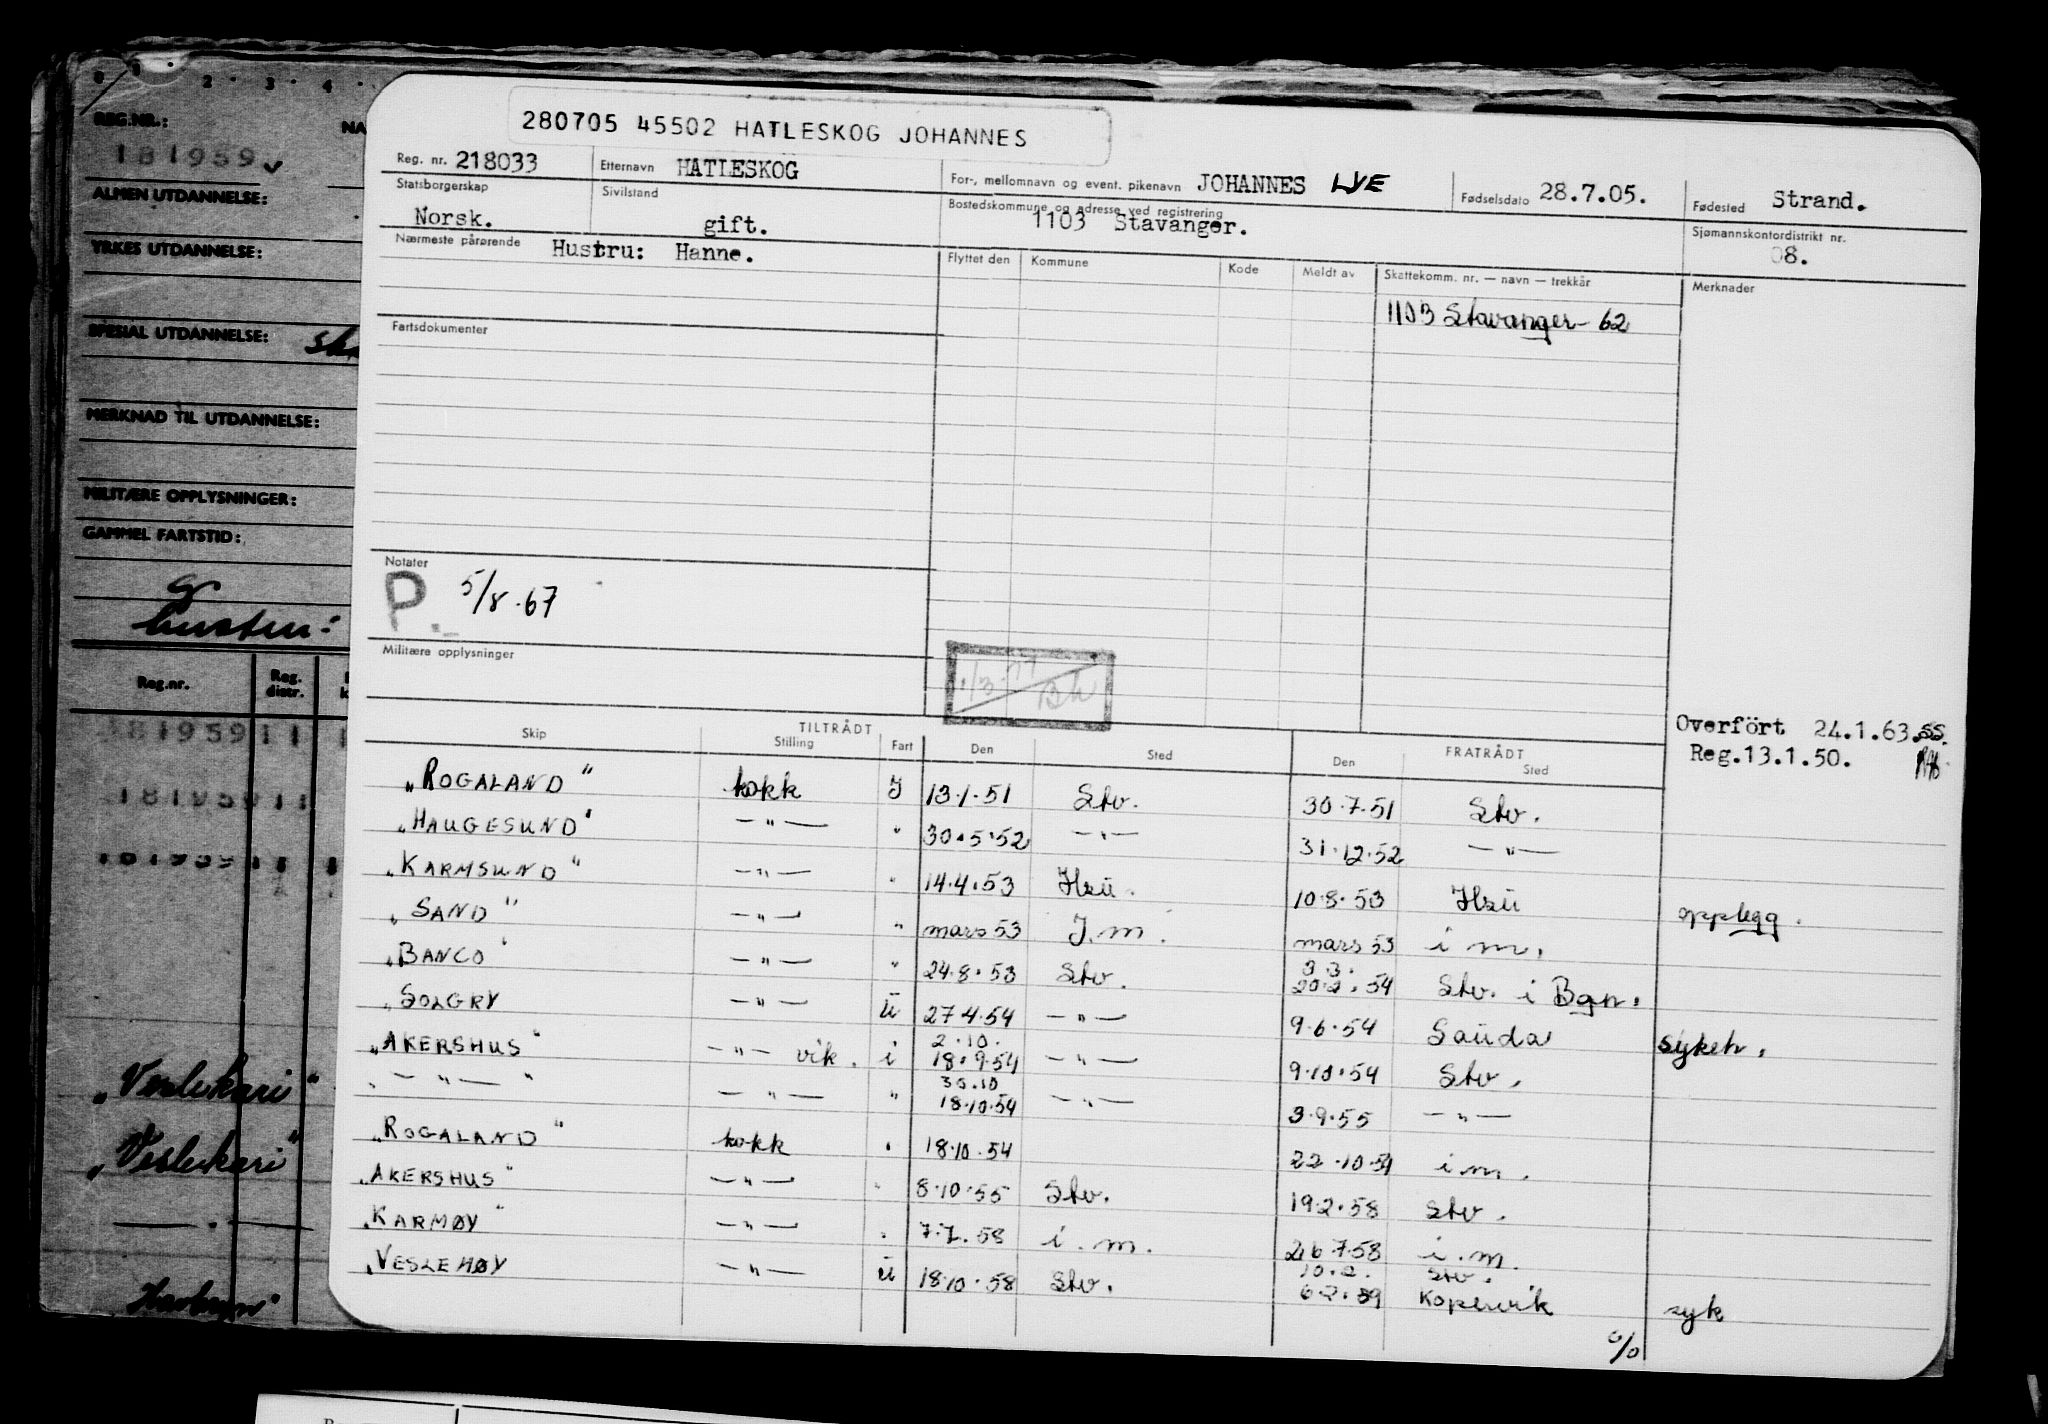 280705 45502 HATLESKOG JOHANNES
Reg. nr. 218033 Etternavn HATLESKOG For-, mellomnavn og event. pikenavn JOHANNES LYE Fødselsdato 28.7.05. Fødested Strand.
Statsborgerskap Norsk. Sivilstand gift. Bostedskommune og adresse ved registrering 1103 Stavanger. Sjømannskontordistrikt nr. 08.
Nærmeste pårørende Hustru: Hanne. Flyttet den Kommune Kode Meldt av Skattekomm. nr. — navn — trekkår Merknader
1103 Stavanger - 62
Fartsdokumenter
Notater
P. 5/8.67
Militære opplysninger
Overfört 24.1.63. SS.
Reg.13.1.50.
TILTRÅDT FRATRÅDT
Skip Stilling Fart Den Sted Den Sted
"ROGALAND" kokk J 13.1.51 Stv. 30.7.51 Stv.
"HAUGESUND" —"— " 30.5.52 —"— 31.12.52 —"—
"KARMSUND" —"— " 14.4.53 Hsu. 10.8.53 Hsu opplegg.
"SAND" —"— " mars 53 J.m. mars 53 i m.
"BANCO" —"— " 24.8.53 Stv. 3.3. 20.2.54 Stv. i Bgn.
"SOLGRY —"— U 27.4.54 —"— 9.6.54 Sauda sykeh.
"AKERSHUS" —"— vik. i 2.10. 18.9.54 —"— 9.10.54 Stv.
" —"— " —"— " 30.10 18.10.54 —"— 3.9.55 —"—
"ROGALAND" kokk " 18.10.54 22.10.54 i m.
"AKERSHUS" —"— " 8.10.55 Stv. 19.2.58 Stv.
"KARMØY" —"— " 7.7.58 i.m. 26.7.58 i.m.
"VESLEMØY —"— U 18.10.58 Stv. 10.2. Stv. 6.2.59 Kopervik syk
%
REG.NR.: NA
181959
ALMEN UTDANNELSE:
YRKES UTDANNELSE:
SPESIAL UTDANNELSE:
MERKNAD TIL UTDANNELSE:
MILITÆRE OPPLYSNINGER:
GAMMEL FARTSTID:
Reg.nr. Reg. distr.
181959 11
181959 11
181959 11
"Veslekari"
"Veslekari"